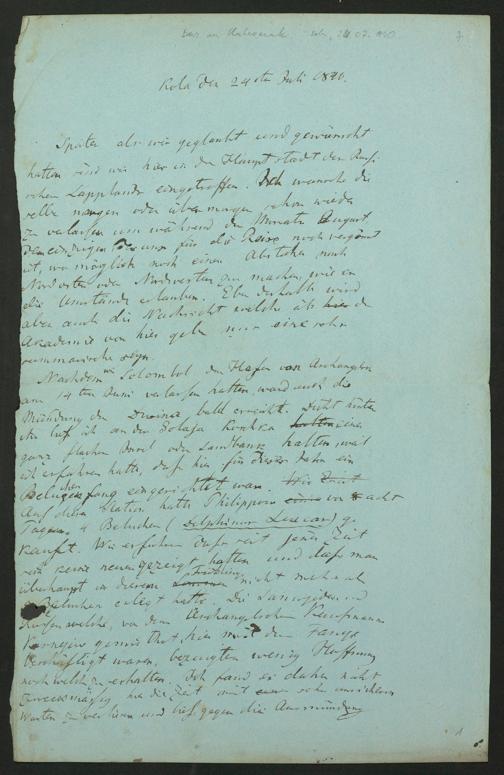 Kola den 24sten Juli 1840.
Später als wir geglaubt und gewünscht
hatten sind wir hier in der Hauptstadt des Russi-
schen Lapplands eingetroffen. Ich wünsche die-
selbe morgen oder übermorgen schon wieder
zu verlassen um während des Monats August
der einzigen für die Reise noch vergönnt
ist, wo möglich noch einen Abstecher nach
Nordosten oder Nordwesten zu machen, wie es
die Umstände erlauben. Eben deshalb wird
aber auch die Nachricht welche ich hier der
Akademie von hier gebe nur eine sehr
summarische seyn.
Nachdem wir Solombol den Hafen von Archangelsk
am 14ten Juni verlassen hatten, ward auch die
Mündung der Dwina bald erreicht. Dicht hinter
ihr lief ich an der Solaja Koschka hatten einer
ganz flachen Insel oder Sandbank halten, weil
ich erfahren hatte, dass hier für dieses Jahr ein
Belugenfang eingerichtet war.
Auf dieser Station hatte Philippow vor acht
Tagen 4 Beluchen (Delphinus Leucas) ge-
kauft. Wir erfuhren dass seit jener Zeit
sich keine neuen gezeigt hatten und dass man
überhaupt in diesem Frühling nicht mehr als
Beluchen erlegt hatte. Die Samojeden und
Russen welche, von dem Archangelschen Kaufmann
gemiethet, hier mit dem Fange
beschäftigt waren, bezeugten wenig Hoffnung
noch welche zu erhalten. Ich fand es daher nicht
zweckmässig hier die Zeit mit sehr unsicherm
Warten zu verlieren und lief gegen die Ausmündung